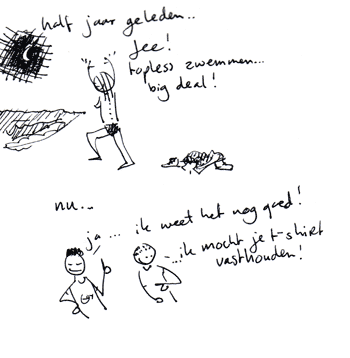 half jaar geleden..
Jee!
topless zwemmen...
big deal!
nu...
ja ... ik weet het nog goed!
...ik mocht je t-shirt
vasthouden!